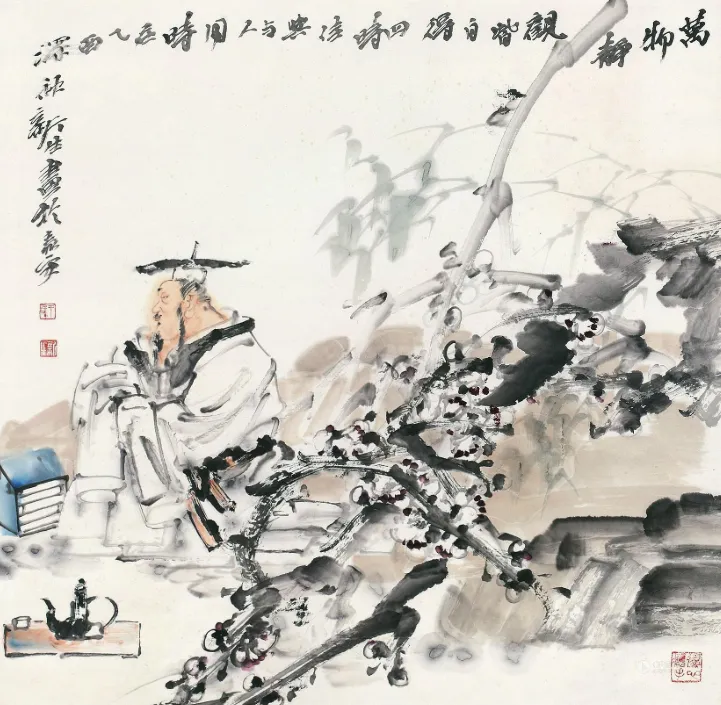 萬物靜觀皆自得四時佳興与人同時在乙酉
深秋新生畫於